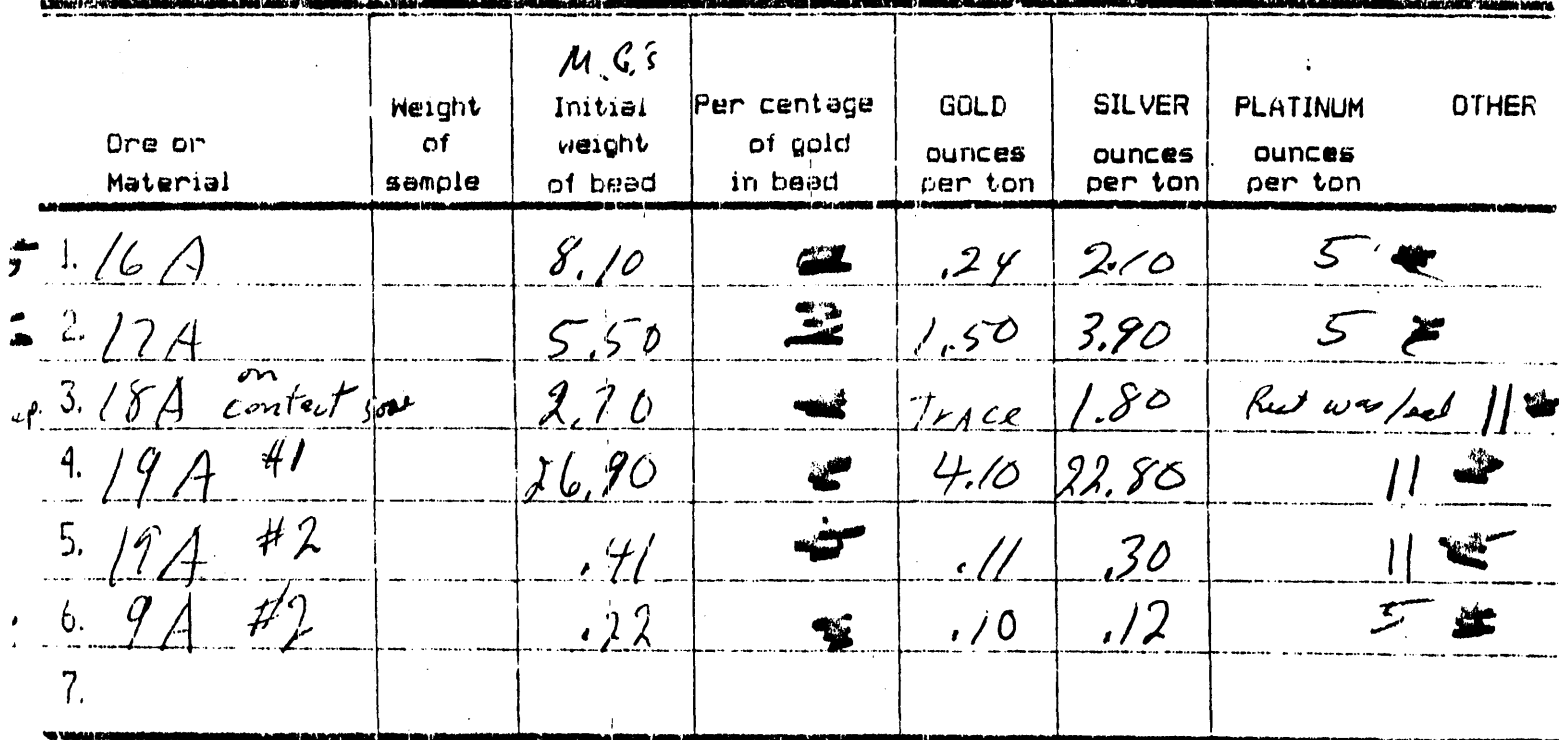 M.G.'s
Ore or Material Weight of sample Initial weight of bead Per centage of gold in bead GOLD ounces per ton SILVER ounces per ton PLATINUM ounces per ton OTHER
1. 16 A 8.10 .24 2.10 5
2. 17A 5.50 1.50 3.90 5
3. 18A on contact 2.70 Trace 1.80 Rest was lead 11
4. 19 A #1 26.90 4.10 22.80 11
5. 19A #2 .41 .11 .30 11
6. 9A #2 .22 .10 .12 5
7.